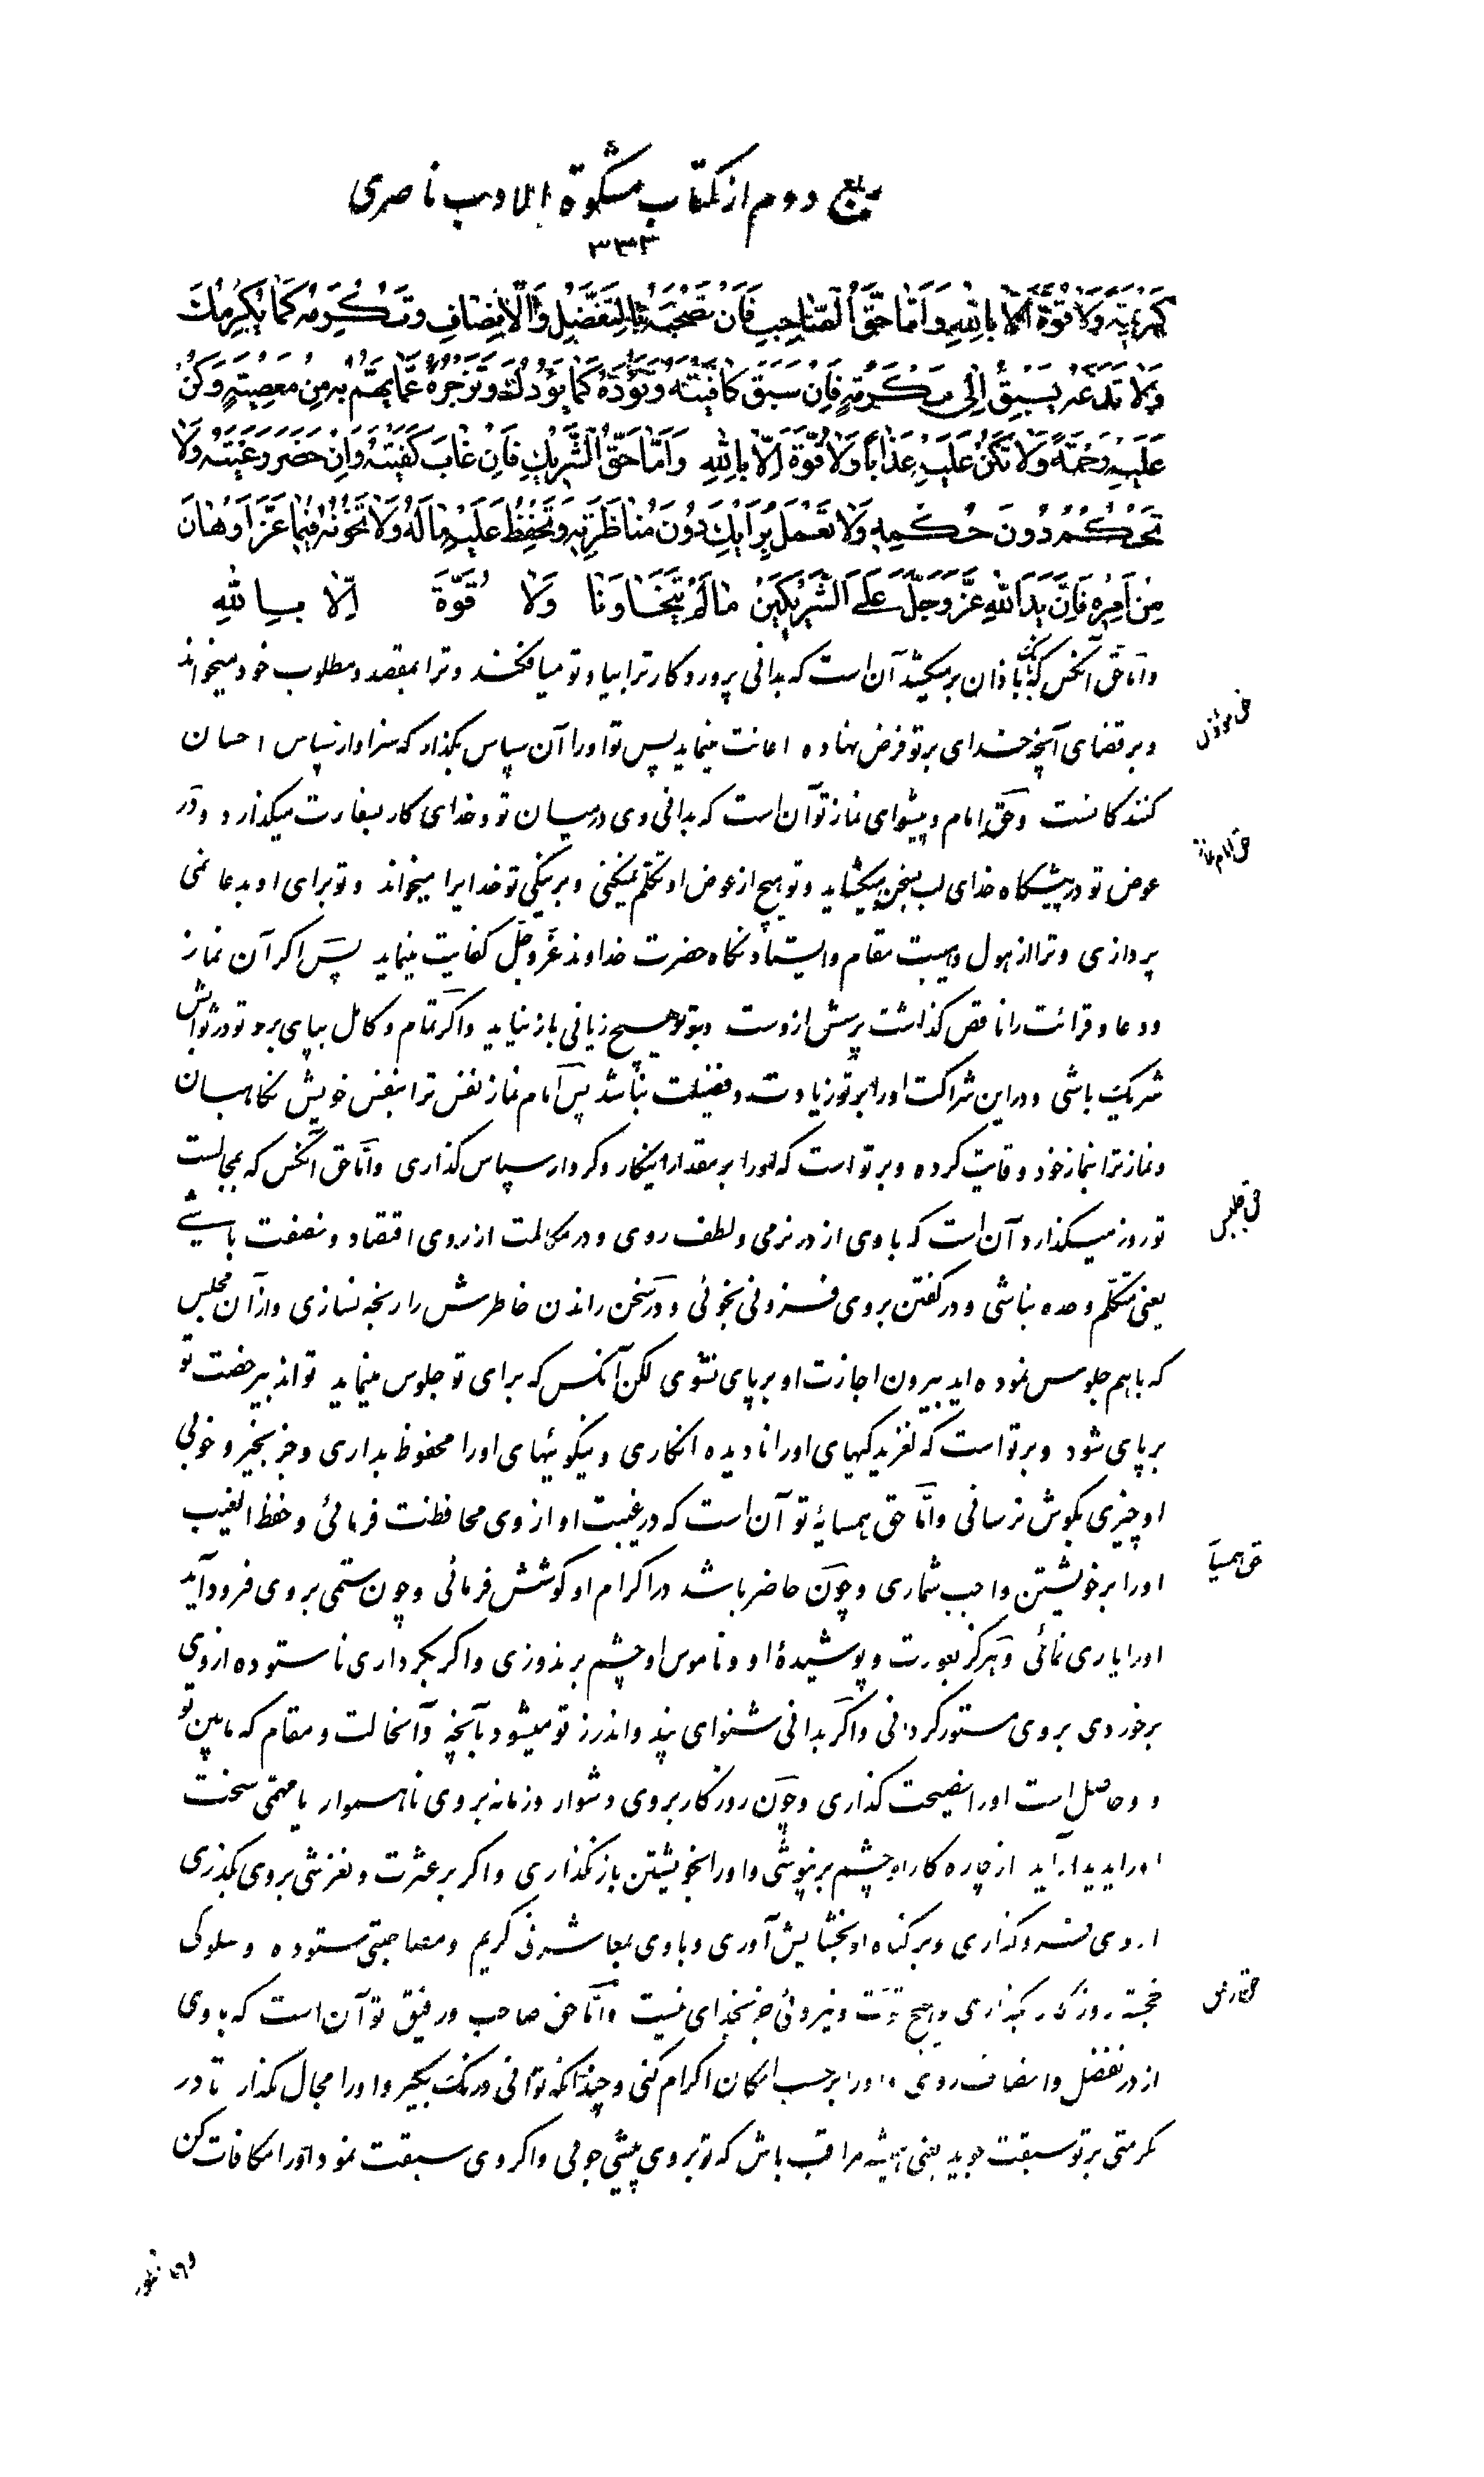 ربع دوم از کتاب مشکوة الادب ناصری
۳۳۳
كَرِيمَةً وَلَا قُوَّةَ اِلَّا بِاللهِ وَاَمَّا حَقُّ الصَّاحِبِ فَاَنْ تَصْحَبَهُ بِالتَّفَضُّلِ وَالْاِنْصَافِ وَتُكْرِمَهُ كَمَا يُكْرِمُكَ
وَلَا تَدَعْهُ يَسْبِقُ اِلَى مَكْرُمَةٍ فَاِنْ سَبَقَ كَافَيْتَهُ وَتَوَدَّهُ كَمَا يَوَدُّكَ وَتَزْجُرَهُ عَمَّا يَهُمُّ بِهِ مِنْ مَعْصِيَةٍ وَكُنْ
عَلَيْهِ رَحْمَةً وَلَا تَكُنْ عَلَيْهِ عَذَاباً وَلَا قُوَّةَ اِلَّا بِاللهِ وَاَمَّا حَقُّ الشَّرِيكِ فَاِنْ غَابَ كَفَيْتَهُ وَاِنْ حَضَرَ رَعَيْتَهُ وَلَا
تَحْكُمْ دُونَ حُكْمِهِ وَلَا تَعْمَلْ بِرَأْيِكَ دُونَ مُنَاظَرَتِهِ وَتَحْفَظُ عَلَيْهِ مَالَهُ وَلَا تَخُونُهُ فِيمَا عَزَّ اَوْ هَانَ
مِنْ اَمْرِهِ فَاِنَّ يَدَ اللهِ عَزَّ وَجَلَّ عَلَى الشَّرِيكَيْنِ مَا لَمْ يَتَخَاوَنَا وَلَا قُوَّةَ اِلَّا بِاللهِ
واما حق آنکس که بانگ باذان برمیکشد آن است که بدانی پروردکار ترا بیاد تو میافکند و ترا بمقصد و مطلوب خود میخواند
حق مؤذن
و بر قضای آنچه خدای بر تو فرض نهاده اعانت مینماید پس تو او را آن سپاس بگذار که سزاوار سپاس احسان
کنندکانست و حق امام و پیشوای نماز تو آن است که بدانی وی در میان تو و خدای کار بسفارت میکذارد و در
حق امام نماز
عوض تو در پیشکاه خدای لب بسخن میکشاید و تو هیچ از عوض او تکلم نمیکنی و بر نیکی تو خدایرا میخواند و تو برای او بدعا نمی
پردازی و ترا از هول و هیبت مقام و ایستادنکاه حضرت خداوند عز و جل کفایت مینماید پس اکر آن نماز
و دعا و قرائت را ناقص کذاشت پرسش از وست و بتو هیچ زیانی باز نیاید واکر تمام و کامل بپای برد تو در ثوابش
شریک باشی و در این شراکت او را بر تو زیادت و فضیلت نباشد پس امام نماز نفس ترا بنفس خویش نکاهبان
و نماز ترا بنماز خود وقایت کرده و بر تو است که او را بر مقدار اینکار و کردار سپاس کذاری واما حق آنکس که بمجالست
حق جلیس
تو روز میکذارد آن است که با وی از در نرمی و لطف روی و در مکالمت از روی اقتصاد و نصفت باشی
یعنی متکلم وحده نباشی و در کفتن بر وی فزونی نجوئی و در سخن راندن خاطرش را رنجه نسازی و از آن مجلس
که باهم جلوس نموده اید بیرون اجازت او بر پای نشوی لکن آنکس که برای تو جلوس مینماید تواند بیرخصت تو
بر پای شود و بر تو است که لغزیدکیهای او را نادیده انکاری و نیکوئیهای او را محفوظ بداری و جز بخیر و خوبی
او چیزی بکوش نرسانی واما حق همسایهٔ تو آن است که در غیبت او از وی محافظت فرمائی و حفظ الغیب
حق همسایه
او را بر خویشتن واجب شماری و چون حاضر باشد در اکرام او کوشش فرمائی و چون ستمی بر وی فرود آید
او را یاری نمائی و هرکز بعورت و پوشیدهٔ او و ناموس او چشم بر ندوزی واکر بکرداری ناستوده از وی
برخوردی بر وی مستور کردانی واکر بدانی شنوای پند و اندرز تو میشود بآنچه در آنحالت و مقام که مابین تو
و وی حاصل است او را نصیحت کذاری و چون روزکار بر وی دشوار و زمانه بر وی ناهموار یا مهمی سخت
او را پدیدار آید از چاره کار او چشم بر نپوشی و او را بخویشتن باز نکذاری واکر بر عثرت و لغزشی بر وی بکذری
از وی فرو کذاری و بر کناه او بخشایش آوری و با وی بمعاشرتی کریم و مصاحبتی ستوده و سلوکی
خجسته روزکار بکذاری و هیچ قوت و نیروئی جز بخدای نیست واما حق صاحب و رفیق تو آن است که با وی
حق رفیق
از در تفضل و انصاف روی و او را بر حسب امکان اکرام کنی و چندانکه توانی درنک بکیر و او را مجال مکذار تا در
مکرمتی بر تو سبقت جوید یعنی همیشه مراقب باش که تو بر وی پیشی جوئی واکر وی سبقت نمود او را مکافات کن